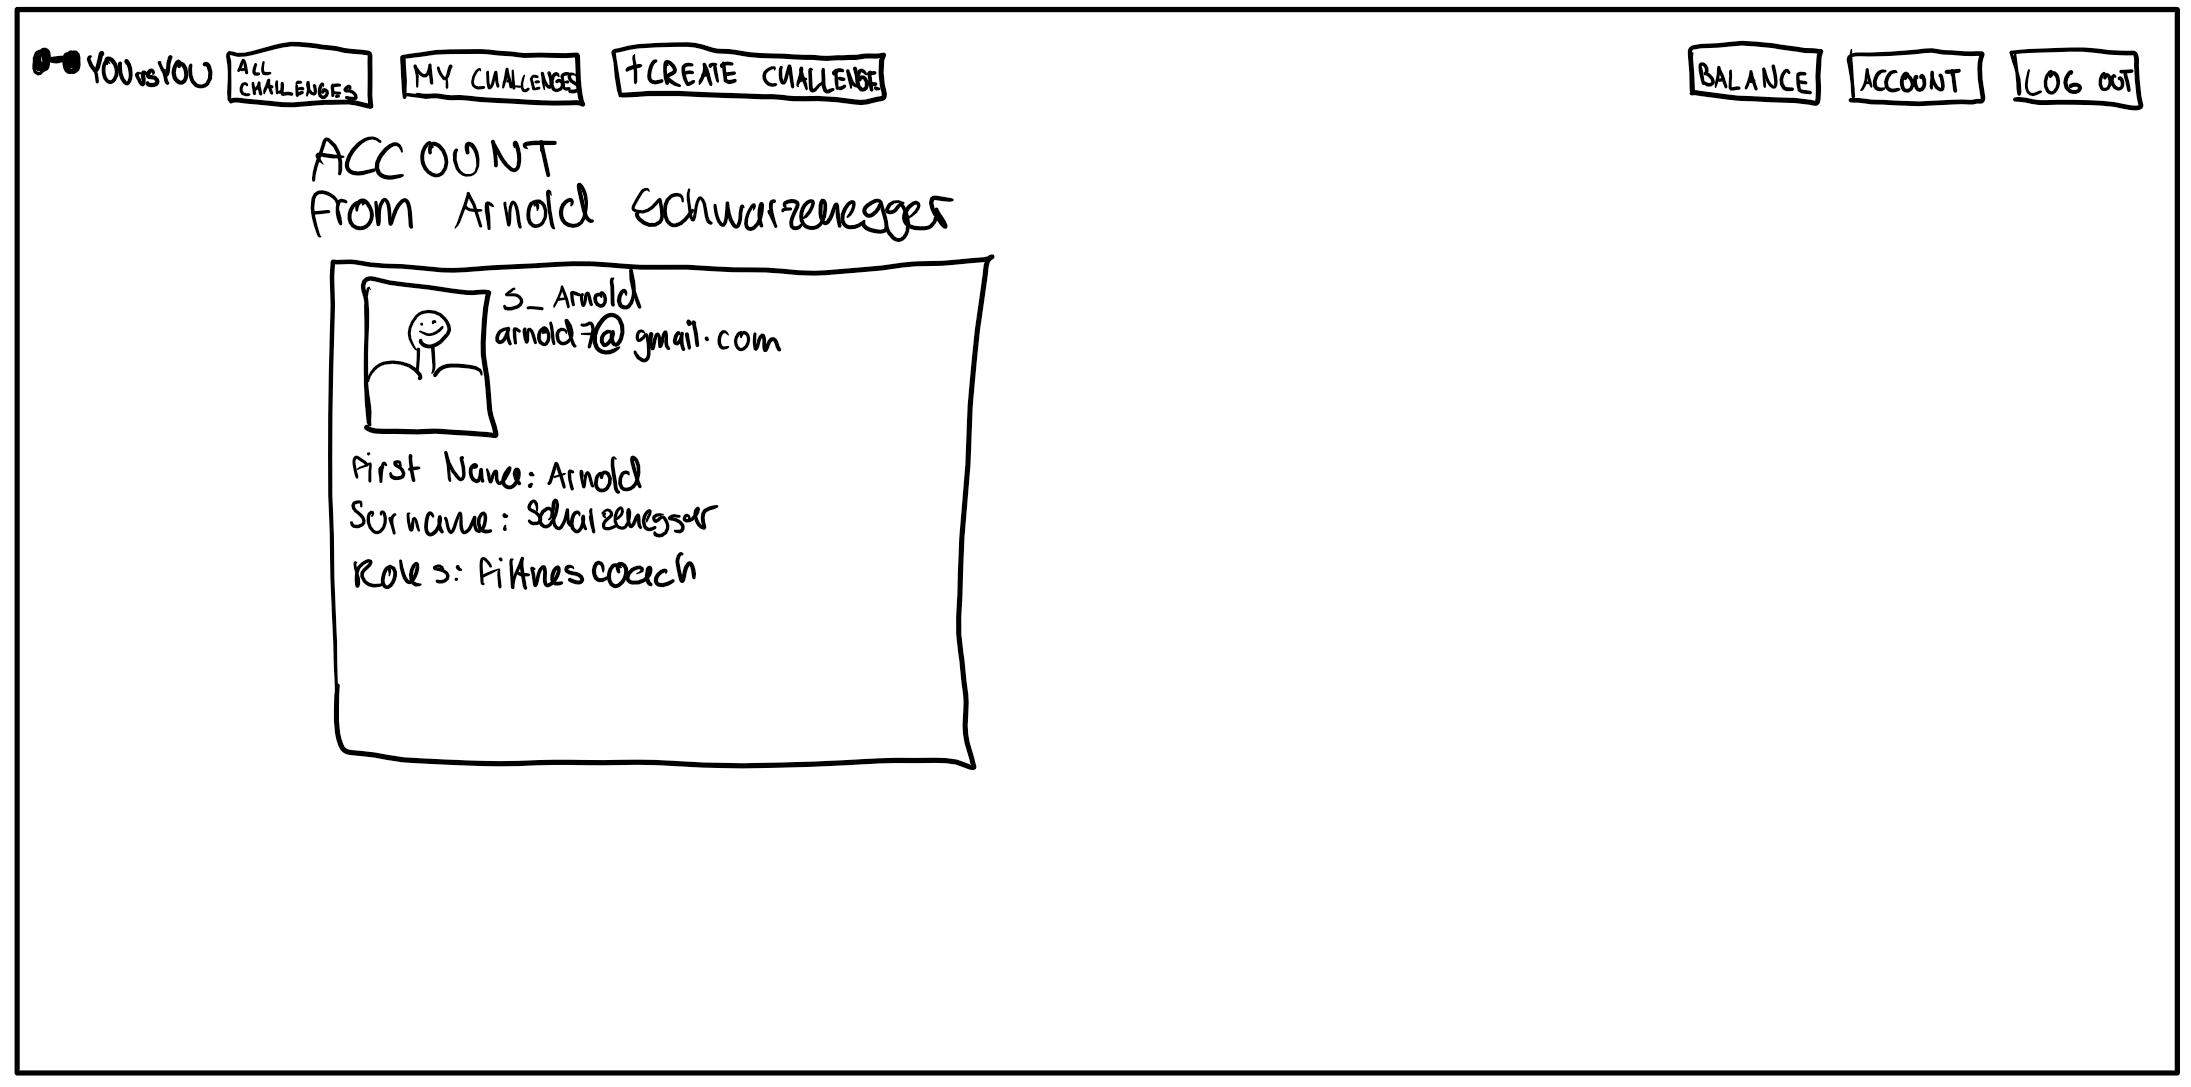 YOUvsYOU
ALL
CHALLENGES
MY CHALLENGES
+CREATE CHALLENGE
BALANCE
ACCOUNT
LOG OUT
ACCOUNT
From Arnold Schwarzenegger
S_Arnold
arnold7@gmail.com
First Name: Arnold
Surname: Scharzenegger
Roles: Fittnes coach